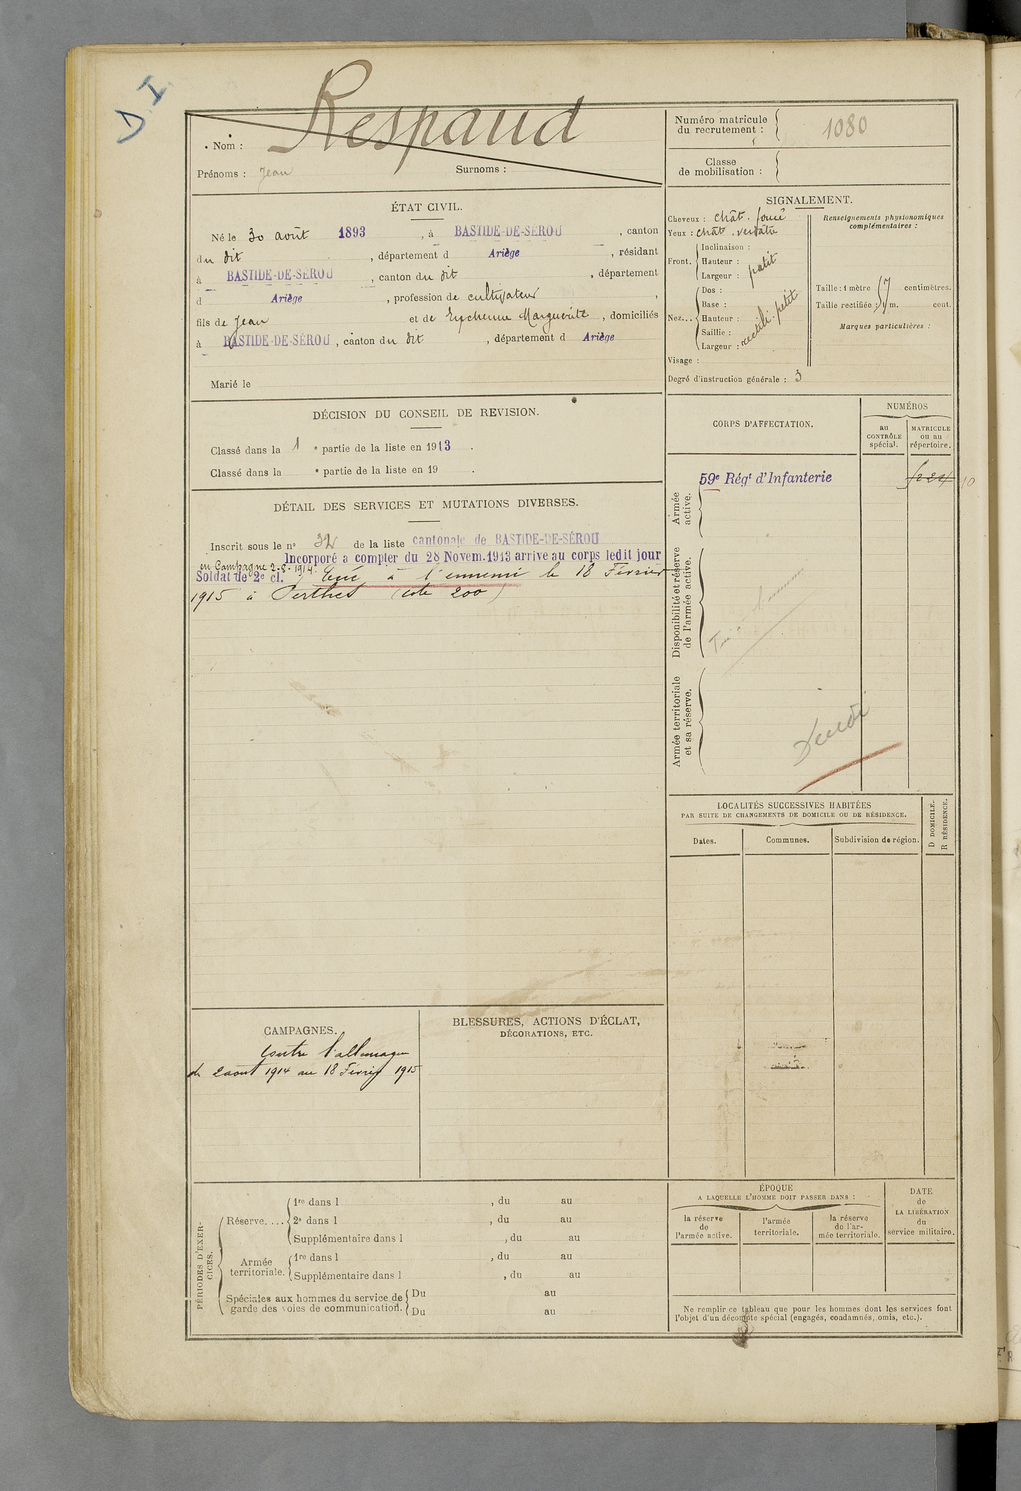 D I
Nom : Respaud
Prénoms : Jean Surnoms :
ÉTAT CIVIL.
Né le 30 août 1893, à BASTIDE-DE-SÉROU, canton
du dit, département d Ariège, résidant
à BASTIDE-DE-SÉROU, canton du dit, département
d Ariège, profession de cultivateur,
fils de Jean et de Marguerite, domiciliés
à BASTIDE-DE-SÉROU, canton du dit, département d Ariège
Marié le
DÉCISION DU CONSEIL DE REVISION.
Classé dans la 1 e partie de la liste en 1913.
Classé dans la e partie de la liste en 19 .
DÉTAIL DES SERVICES ET MUTATIONS DIVERSES.
Inscrit sous le n° 32 de la liste cantonale de BASTIDE-DE-SÉROU
Incorporé a compter du 28 Novem. 1913 arrive au corps ledit jour
en Campagne 2-8-1914.
Soldat de 2e cl. Tué à l'ennemi le 18 Février
1915 à Perthes (côte 200)
CAMPAGNES.
Contre l'allemagne
du 2 aout 1914 au 18 Février 1915
BLESSURES, ACTIONS D'ÉCLAT,
DÉCORATIONS, ETC.
PÉRIODES D'EXER-
CICES.
Réserve....
1re dans l , du au
2e dans l , du au
Supplémentaire dans l , du au
Armée
territoriale.
1re dans l , du au
Supplémentaire dans l , du au
Spéciales aux hommes du service de
garde des voies de communication.
Du au
Du au
Numéro matricule
du recrutement : 1080
Classe
de mobilisation :
SIGNALEMENT.
Cheveux : chât. foncé
Yeux : chât. verdâtre
Front.
Inclinaison :
Hauteur :
Largeur : petit
Nez...
Dos :
Base :
Hauteur :
Saillie :
Largeur : rectili. petit
Visage :
Degré d'instruction générale : 3
Renseignements physionomiques
complémentaires :
Taille : 1 mètre 57 centimètres.
Taille rectifiée : m. cent.
Marques particulières :
CORPS D'AFFECTATION.
NUMÉROS
au
CONTRÔLE
spécial.
MATRICULE
ou au
répertoire.
Armée
active.
59e Régt d'Infanterie
Disponibilité et réserve
de l'armée active.
Tué à l'ennemi
Armée territoriale
et sa réserve.
Décédé
LOCALITÉS SUCCESSIVES HABITÉES
PAR SUITE DE CHANGEMENTS DE DOMICILE OU DE RÉSIDENCE.
D DOMICILE.
R RÉSIDENCE.
Dates. Communes. Subdivision de région.
ÉPOQUE
A LAQUELLE L'HOMME DOIT PASSER DANS :
la réserve
de
l'armée active.
l'armée
territoriale.
la réserve
de l'ar-
mée territoriale.
DATE
de
LA LIBÉRATION
du
service militaire.
Ne remplir ce tableau que pour les hommes dont les services font
l'objet d'un décompte spécial (engagés, condamnés, omis, etc.).